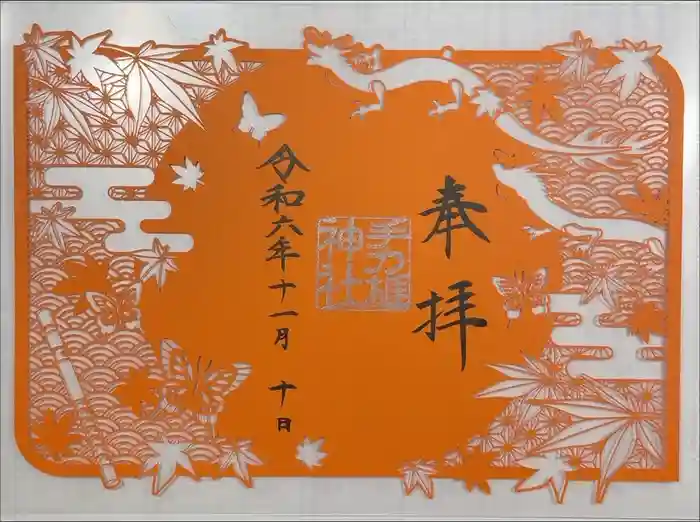 奉拝
手力雄
神社
令和六年十一月 十日